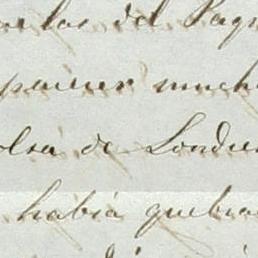 las del Pagu
parecer much
olsa de Londre
habia quebra